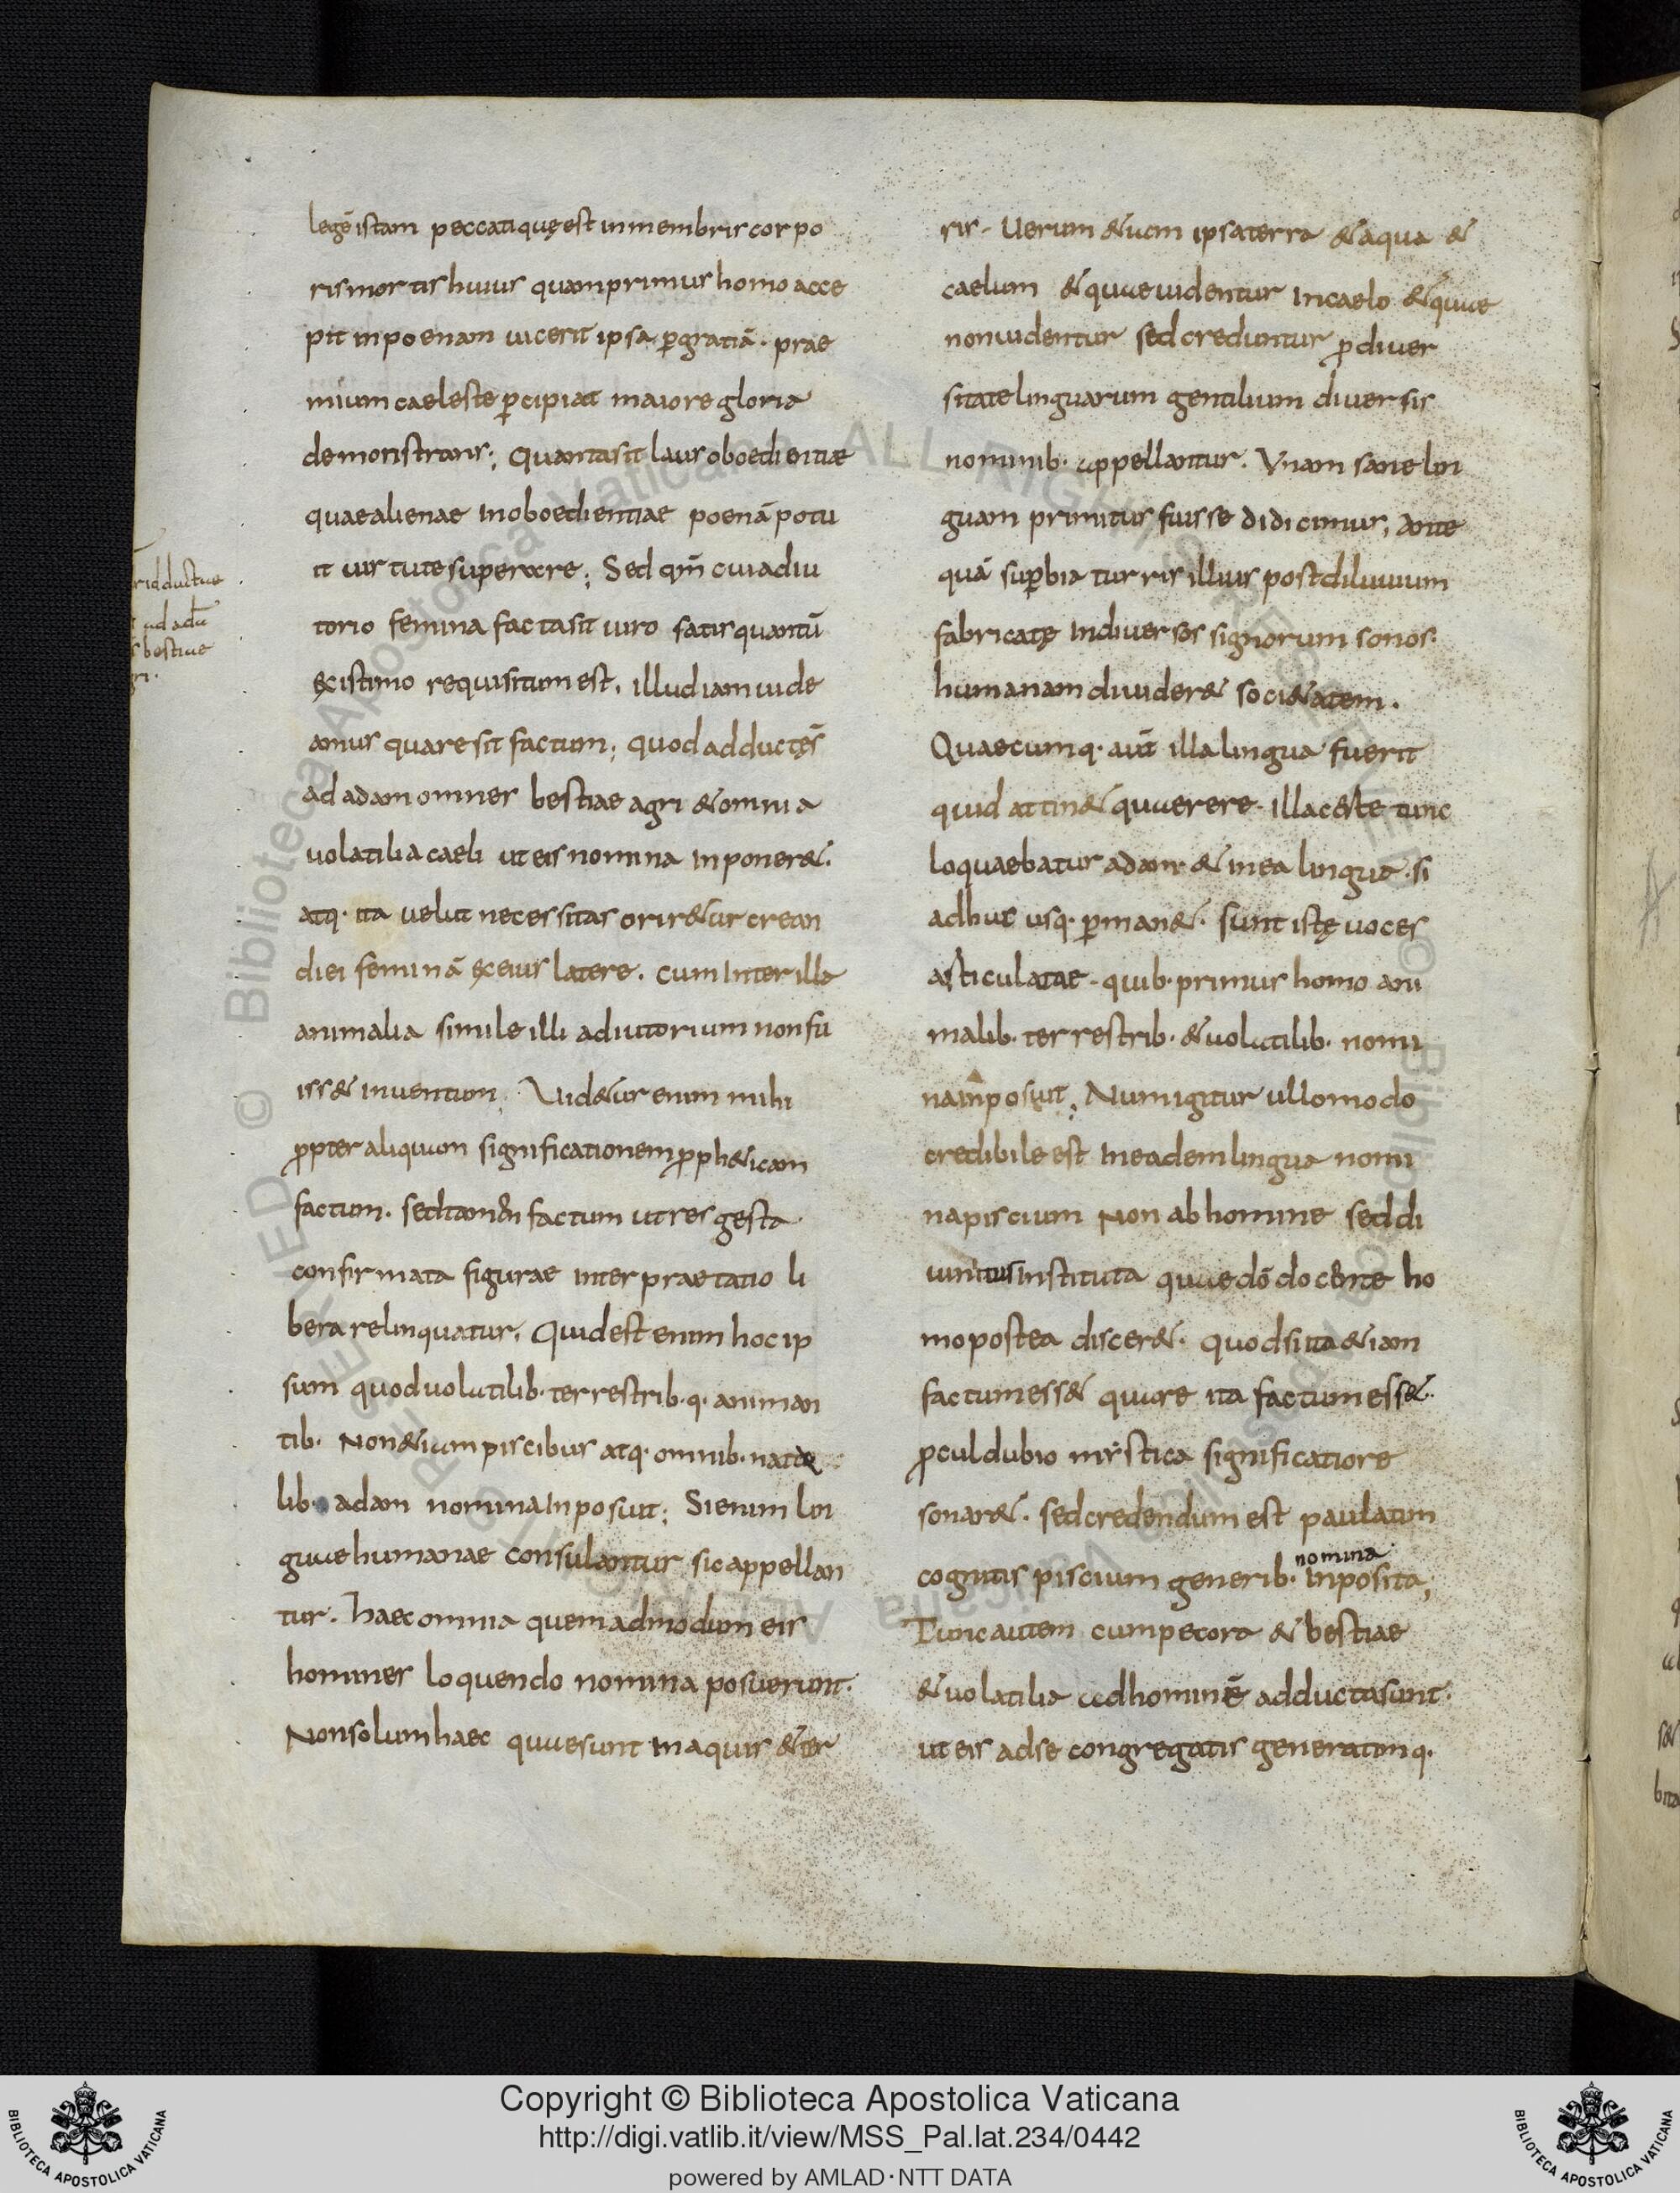 legē istam peccati quę est in membris corpo
ris mortis huius quam primus homo acce
pit in poenam uicerit ipsa ꝑ gratiā. prae
mium caeleste ꝑcipiat maiore gloria
demonstrans; Quanta sit laus oboedientiae
quae alienae inoboedientiae poenā potu
it uirtute superare; Sed qm̄ cui adiu
torio femina facta sit uiro satis quantū
ęxistimo requisitum est, illud iam uide
amus quare sit factum; quod adductę s̄
ad adam omnes bestiae agri & omnia
uolatilia caeli ut eis nomina inponer&.
atq· ita uelut necessitas orir&ur crean
diei feminā ęx eius latere. cum inter illa
animalia simile illi adiutorium non fu
iss& inuentum; Uid&ur enim mihi
ꝓpter aliquam significationem ꝓph&icam
factum. sed tam̄ factum ut res gesta
confirmata figurae interpraetatio li
bera relinquatur. Quid est enim hoc ip
sum quod uolatilib· terrestrib·q· animan
tib· Non &iam piscibus atq· omnib· nata
lib· adam nomina inposuit; Si enim lin
guae humanae consulantur sic appellan
tur. haec omnia quemadmodum eis
homines loquendo nomina posuerunt.
Non solum haec quae sunt in aquis & ter
ris. Uerum &iam ipsa terra & aqua &
caelum & quae uidentur in caelo & quae
non uidentur sed creduntur ꝓ diuer
sitate linguarum gentilium diuersis
nominib· appellantur. Unam sane lin
guam primitus fuisse didicimus, ante
quā suꝑbia turris illius post diluuium
fabricatę in diuersos signorum sonos.
humanam diuider& soci&atem.
Quaecumq· aūt illa lingua fuerit
quid attin& quaerere. illa certe tunc
loquaebatur adam & in ea lingua. si
adhuc usq· ꝑman&. sunt istę uoces
articulatae. quib· primus homo ani
malib· terrestrib· & uolatilib· nomi
na inposuit; Num igitur ullo modo
credibile est in eadem lingua nomi
na piscium Non ab homine sed di
uinitus instituta quae dō docente ho
mo postea discer&. quod si ita &iam
factum ess& quare ita factum ess&.
ꝓcul dubio mẏstica significatiore
sonar&. sed credendum est paulatim
nomina
cognitis piscium generib· inposita;
Tunc autem cum pecora & bestiae
& uolatilia ad hominē adducta sunt.
ut eis ad se congregatis generatimq·
ud adā
bestiae
Copyright © Biblioteca Apostolica Vaticana
http://digi.vatlib.it/view/MSS_Pal.lat.234/0442
powered by AMLAD·NTT DATA
BIBLIOTECA APOSTOLICA VATICANA
BIBLIOTECA APOSTOLICA VATICANA